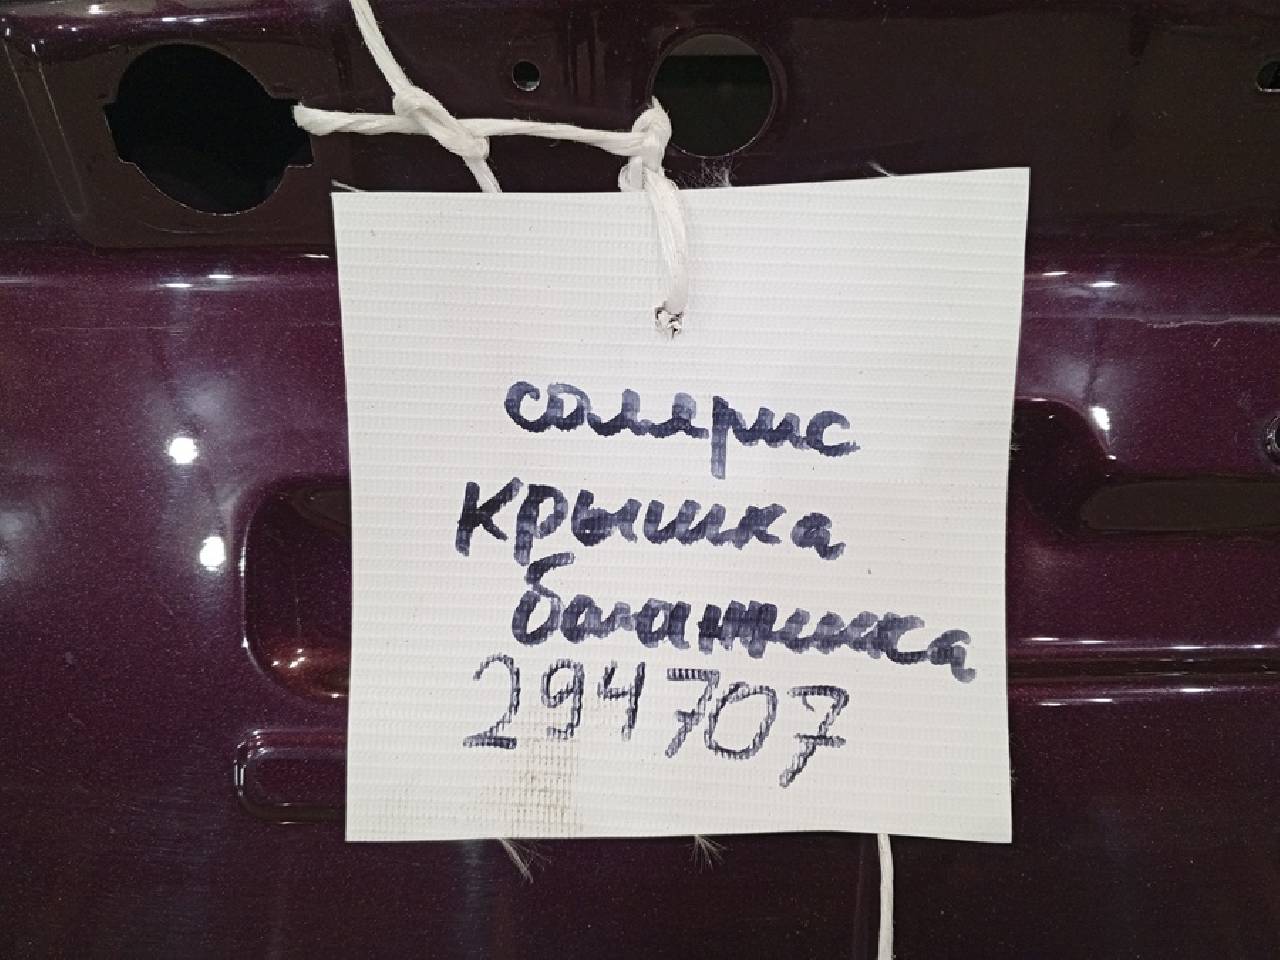 солярис
крышка
багажника
294707